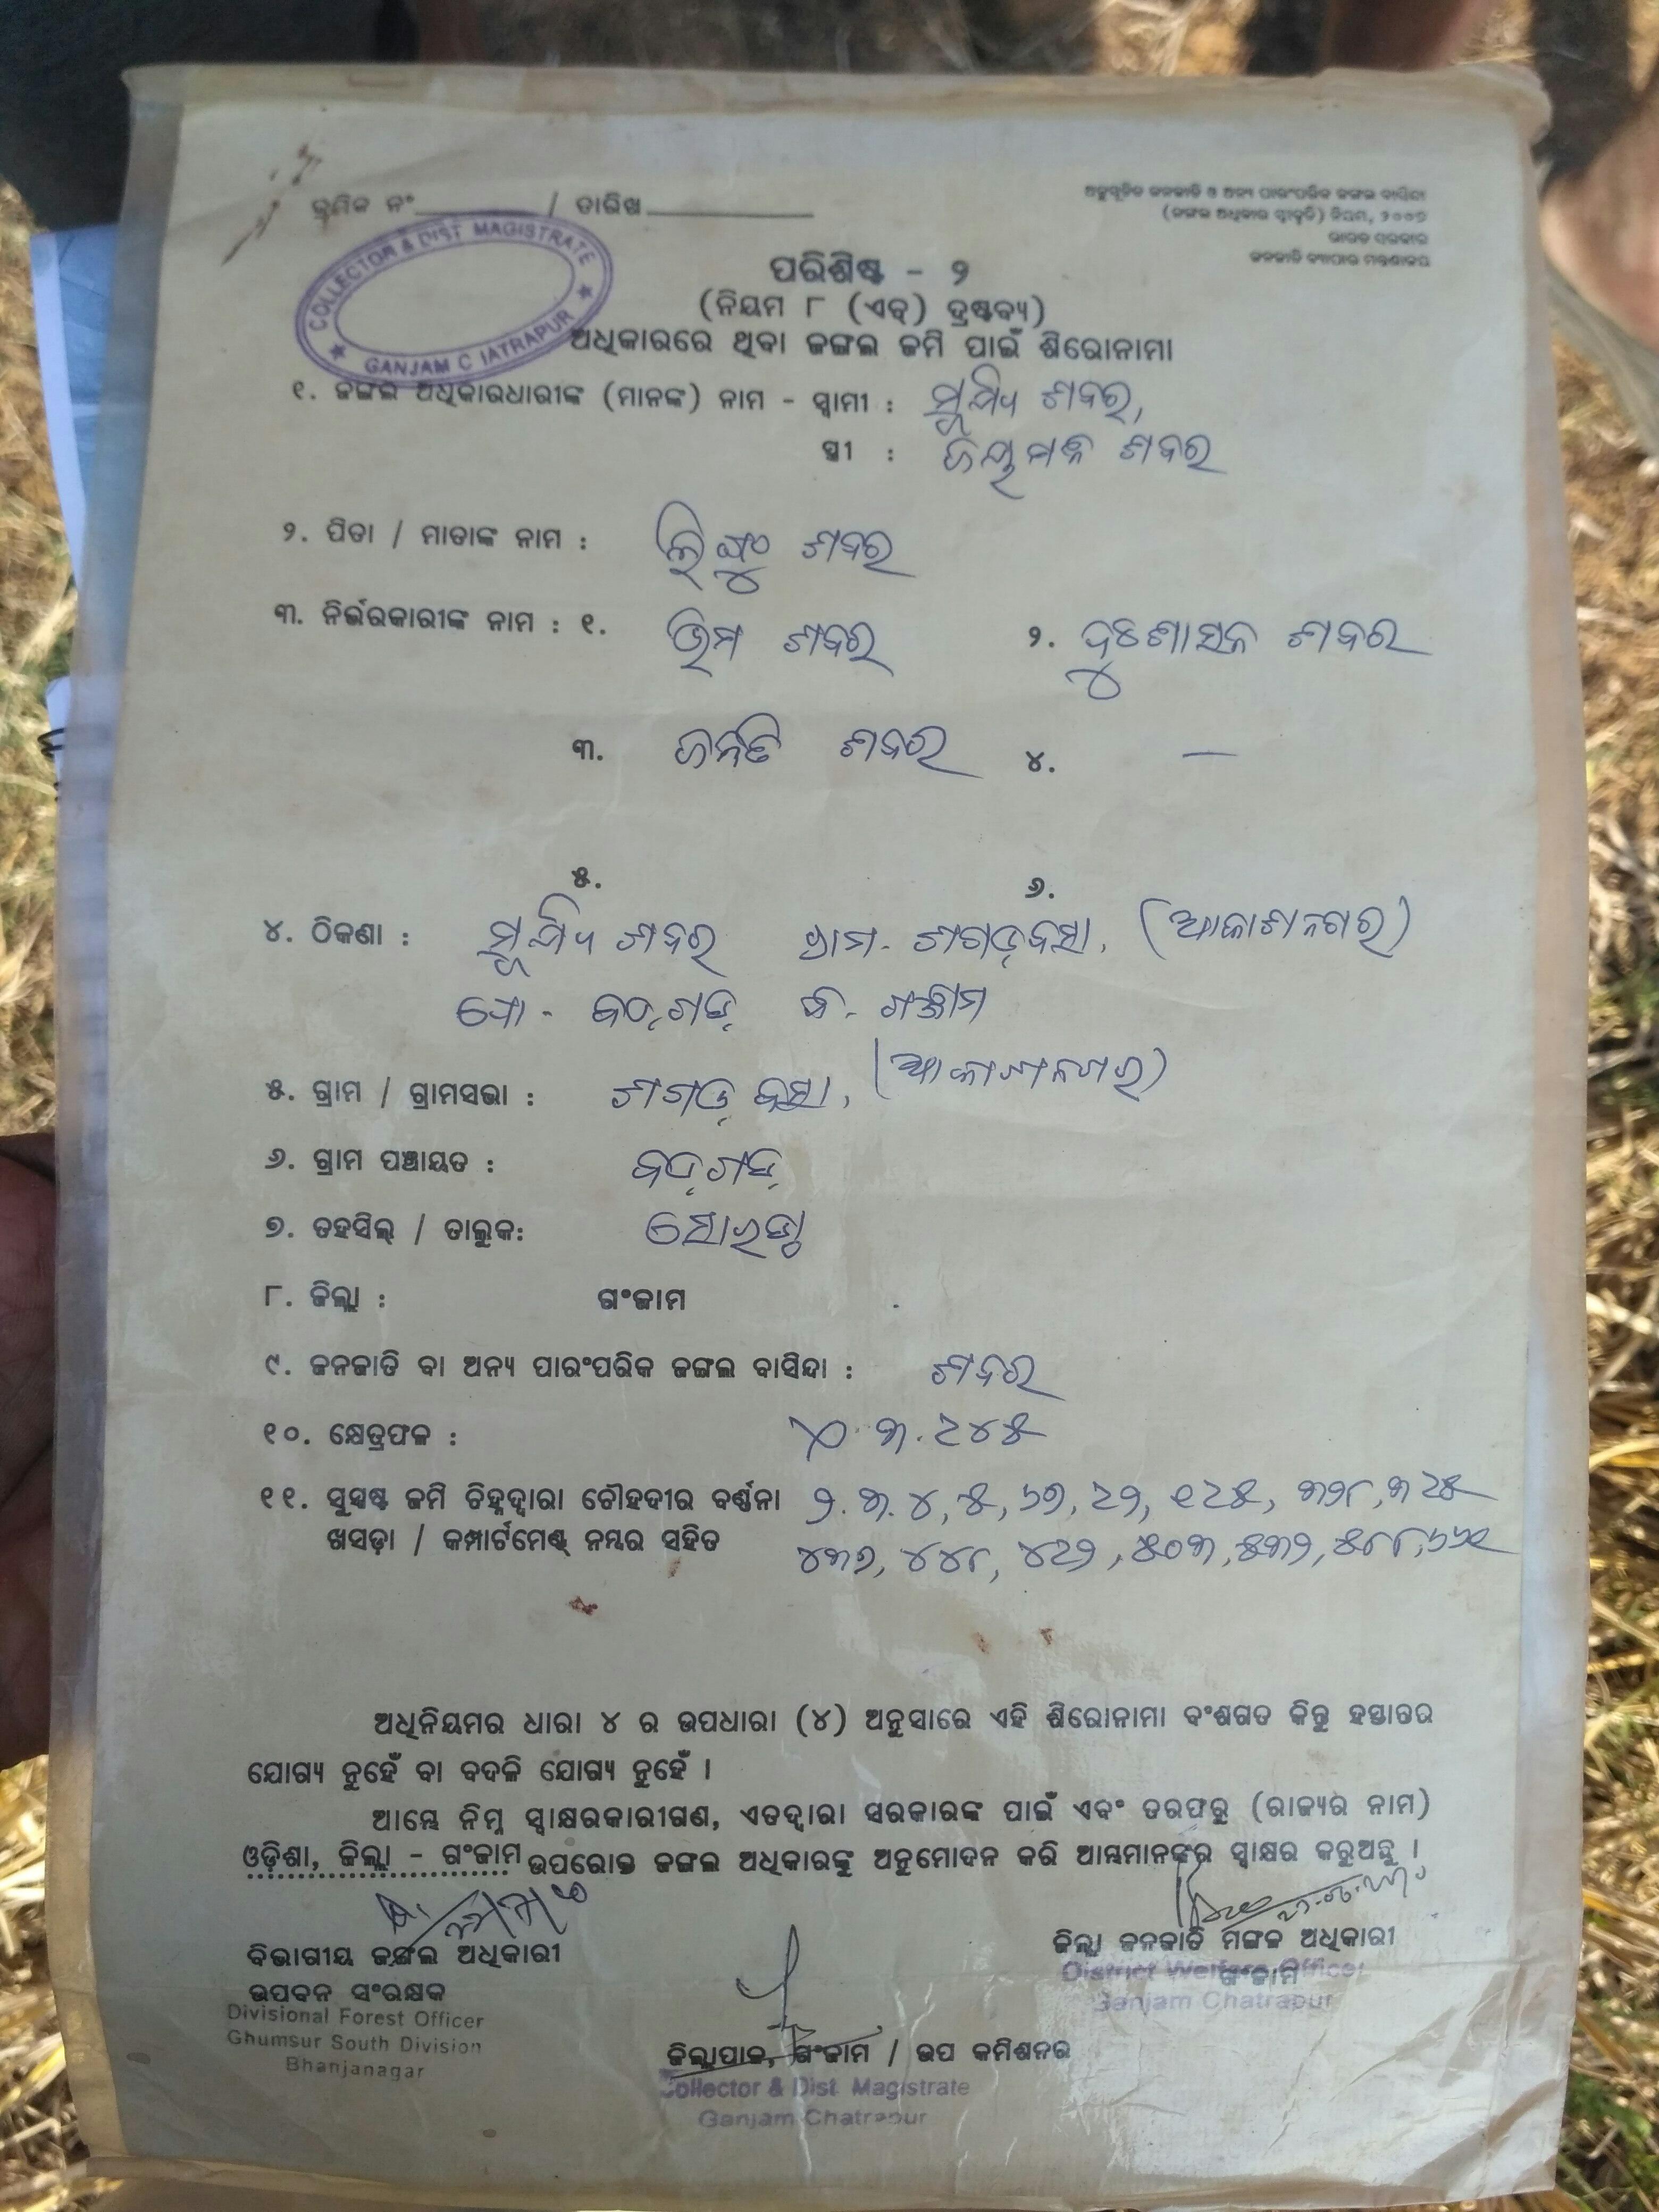 କ୍ରମିକ ନଂ / ତାରିଖ
ଅନୁସୂଚିତ ଜନଜାତି ଓ ଅନ୍ୟ ପାରଂପରିକ ଜଙ୍ଗଲ ବାସିନ୍ଦା
(ଜଙ୍ଗଲ ଅଧିକାର ସ୍ୱୀକୃତି) ନିୟମ, ୨୦୦୭
ଭାରତ ସରକାର
ଜନଜାତି ବ୍ୟାପାର ମନ୍ତ୍ରଣାଳୟ
COLLECTOR & DIST MAGISTRATE
GANJAM C IATRAPUR
ପରିଶିଷ୍ଟ - ୨
(ନିୟମ ୮ (ଏଚ୍) ଦ୍ରଷ୍ଟବ୍ୟ)
ଅଧିକାରରେ ଥିବା ଜଙ୍ଗଲ ଜମି ପାଇଁ ଶିରୋନାମା
୧. ଜଙ୍ଗଲ ଅଧିକାରଧାରୀଙ୍କ (ମାନଙ୍କ) ନାମ - ସ୍ୱାମୀ : ଶବର,
ସ୍ତ୍ରୀ : ଶବର
୨. ପିତା / ମାତାଙ୍କ ନାମ : ଶବର
୩. ନିର୍ଭରକାରୀଙ୍କ ନାମ : ୧. ଭିମ ଶବର ୨. ଦୁଃଶାସନ ଶବର
୩. ଶବର ୪. —
୫. ୬.
୪. ଠିକଣା : ଶବର ଗ୍ରାମ- ଶଗଡ଼ବସା, (ଆକାଶନଗର)
ପୋ - ବଡ଼ଗଡ଼ ଜି- ଗଞ୍ଜାମ
୫. ଗ୍ରାମ / ଗ୍ରାମସଭା : ଶଗଡ଼ବସା, (ଆକାଶନଗର)
୬. ଗ୍ରାମ ପଞ୍ଚାୟତ : ବଡ଼ଗଡ଼
୭. ତହସିଲ୍ / ତାଲୁକ: ସୋରଡ଼ା
୮. ଜିଲ୍ଲା : ଗଂଜାମ
୯. ଜନଜାତି ବା ଅନ୍ୟ ପାରଂପରିକ ଜଙ୍ଗଲ ବାସିନ୍ଦା : ଶବର
୧୦. କ୍ଷେତ୍ରଫଳ : ୩.୨୪୫
୧୧. ସୁସ୍ପଷ୍ଟ ଜମି ଚିହ୍ନଦ୍ୱାରା ଚୌହଦୀର ବର୍ଣ୍ଣନା ୪, ୫, ୧୨୫, ୩୨୫
ଖସଡ଼ା / କମ୍ପାର୍ଟମେଣ୍ଟ୍ ନମ୍ବର ସହିତ ୪୪୮, ୫୦୩,
ଅଧିନିୟମର ଧାରା ୪ ର ଉପଧାରା (୪) ଅନୁସାରେ ଏହି ଶିରୋନାମା ବଂଶଗତ କିନ୍ତୁ ହସ୍ତାନ୍ତର
ଯୋଗ୍ୟ ନୁହେଁ ବା ବଦଳି ଯୋଗ୍ୟ ନୁହେଁ ।
ଆମ୍ଭେ ନିମ୍ନ ସ୍ୱାକ୍ଷରକାରୀଗଣ, ଏତଦ୍ୱାରା ସରକାରଙ୍କ ପାଇଁ ଏବଂ ତରଫରୁ (ରାଜ୍ୟର ନାମ)
ଓଡ଼ିଶା, ଜିଲ୍ଲା - ଗଂଜାମ ଉପରୋକ୍ତ ଜଙ୍ଗଲ ଅଧିକାରଙ୍କୁ ଅନୁମୋଦନ କରି ଆମ୍ଭମାନଙ୍କର ସ୍ୱାକ୍ଷର କରୁଅଛୁ ।
ବିଭାଗୀୟ ଜଙ୍ଗଲ ଅଧିକାରୀ
ଉପବନ ସଂରକ୍ଷକ
Divisional Forest Officer
Ghumsur South Division
Bhanjanagar
ଜିଲ୍ଲା ଜନଜାତି ମଙ୍ଗଳ ଅଧିକାରୀ
ଗଂଜାମ
District Welfare Officer
Ganjam Chatrapur
ଜିଲ୍ଲାପାଳ, ଗଂଜାମ / ଉପ କମିଶନର
Collector & Dist. Magistrate
Ganjam Chatrapur